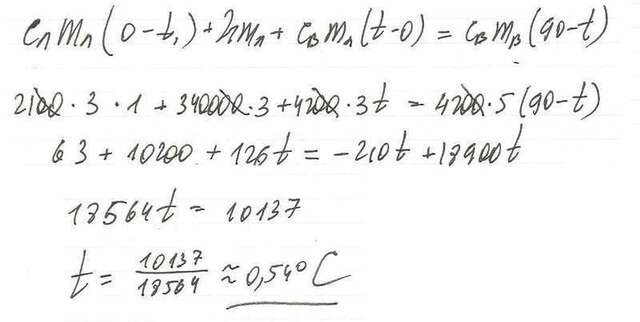 cлmл(0-t₁)+λmл+cвmл(t-0)=cвmв(90-t)
2100·3·1+340000·3+4200·3t=4200·5(90-t)
63+10200+126t=-210t+18900t
18564t=10137
t=10137/18564≈0,54°C